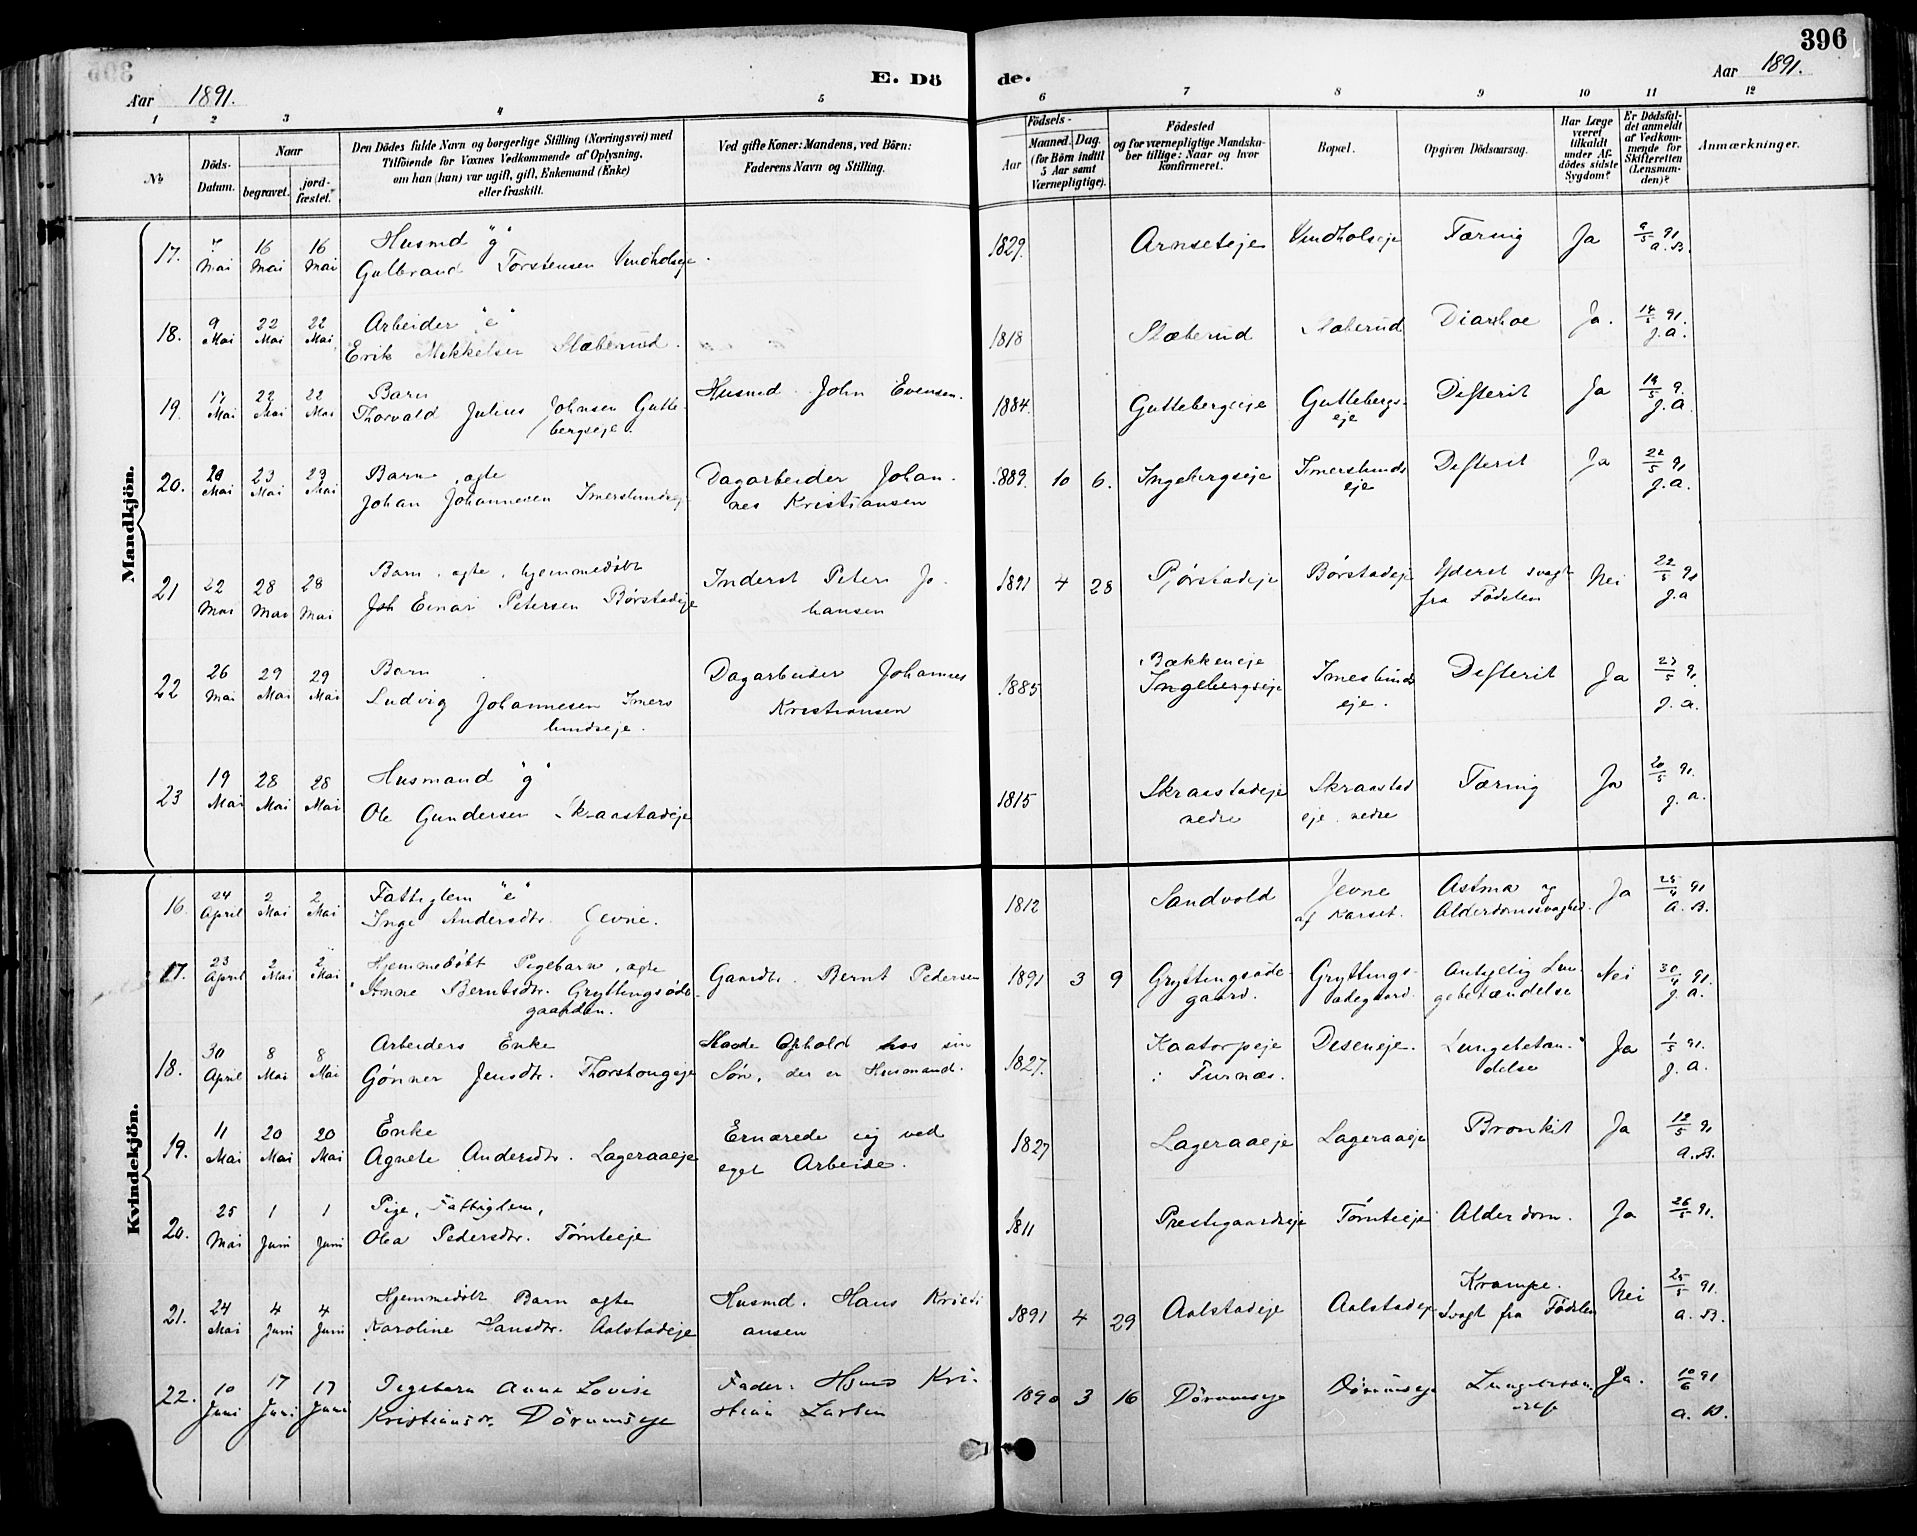 396
Aar 1891.
E. Dö de.
Aar 1891.
1 2 3 4 5 6 7 8 9 10 11 12
No
Döds-Datum.
Naar
begravet.
jord-fæstet.
Den Dödes fulde Navn og borgerlige Stilling (Næringsvei) med
Tilföiende for Voxnes Vedkommende af Oplysning,
om han (hun) var ugift, gift, Enkemand (Enke)
eller fraskilt.
Ved gifte Koner: Mandens, ved Börn:
Faderens Navn og Stilling.
Födsels-
Aar
Maaned. Dag.
(for Börn indtil
5 Aar samt
Værnepligtige).
Födested
og for værnepligtige Mandska-
ber tillige: Naar og hvor
konfirmeret.
Bopæl.
Opgiven Dödsaarsag.
Har Læge
været
tilkaldt
under Af-
dödes sidste
Sygdom?
Er Dödsfal-
det anmeldt
af Vedkom-
mende for
Skifteretten
(Lensman-
den)?
Anmærkninger.
Mandkjön.
17. 7 Mai 16 Mai 16 Mai Husmd "g" 1829. Arnseteje Vindholseje Tæring Ja 9/5 91.
Gulbrand Torstensen Vindholseje. a.B.
18. 9 Mai 22 Mai 22 Mai Arbeider "e" 1818 Stæberud Stæberud Diarrhoe Ja. 14/5 91.
Erik Mikkelsen Stæberud. J.A.
19. 17 Mai 22 Mai 22 Mai Barn Husmd. John Evensen. 1884. Guttebergseje Guttebergs- Difterit Ja 19/5 9.
Thorvald Julius Johnsen Gutte- eje J.A.
bergseje.
20. 20 Mai 23 Mai 23 Mai Barn, ægte Dagarbeider Johan- 1889. 10 6. Ingebergseje Imerslunds Difterit Ja 22/5 91
Johan Johannesen Imerslundseje nes Kristiansen eje J.A.
21 22 Mai 28 Mai 28 Mai Barn, ægte, hjemmedöbt Inderst Peter Jo- 1891 4 28 Börstadeje Yderst svagt Nei 22/5 91
Einar Petersen Börstadeje hansen fra Födslen J.A
22 26 Mai 29 Mai 29 Mai Barn Dagarbeider Johannes 1885 Bækkeneje Imerslunds Difterit Ja 27/5 91
Ludvig Johannesen Imers Kristiansen Ingebergseje eje. J.A.
lundseje.
23 19 Mai 28 Mai 28 Mai Husmand "g" 1815 Skraastadeje Skraastad Tæring Ja 20/5 91.
Ole Gundersen Skraastadeje nedre eje nedre J.A.
Kvindekjön.
16. 24 April 2 Mai 2 Mai Fattiglem "e" 1812 Sandvold Jevne Astma og Ja 25/4 91
Inge Andersdtr. Jevne. af Karset. Alderdomssvaghed. A.B.
17. 23 April 2 Mai 2 Mai Hjemmedöbt Pigebarn, ægte Gaardbr. Bernt Pedersen 1891 3 9 Gryttingsöde- Gryttings- Antagelig Lun- Nei 30/4 91.
Anne Berntsdtr. Gryttingsöde- gaard. ödegaard. gebetændelse J.A.
gaarden.
18. 30 April 8 Mai 8 Mai Arbeiders Enke Havde Ophold hos sin 1827. Kaatorpeje Deseneje. Lungebetæn- Ja 1/5 91.
Gönner Jensdtr. Thorstongeje Sön, der er Husmand. i Furnæs. delse J.A.
19. 11 Mai 20 Mai 20 Mai Enke Ernærede sig ved 1827 Lageraaeje Lageraaeje Bronkit Ja 12/5 91
Agnete Andersdtr. Lageraaeje eget Arbeide. A.B.
20. 25 Mai 1 Juni 1 Juni Pige, Fattiglem, 1811 Prestegaardseje Törnteeje Alderdom. Ja 26/5 91.
Olea Pedersdtr. Törnteeje
21. 24 Mai 4 Juni 4 Juni Hjemmedöbt Barn ægte Husmd. Hans Kristi 1891 4 29 Aalstadeje Aalstadeje Krampe. Nei 25/5 91.
Karoline Hansdtr. Aalstadeje ansen Svagt fra Födslen A.B.
22. 10 Juni 17 Juni 17 Juni Pigebarn Anna Lovise Fader: Kri- 1890 3 16 Dörumseje Dörumseje Ja. 10/6 91
Kristiansdr. Dörumseje stian Larsen A.B.